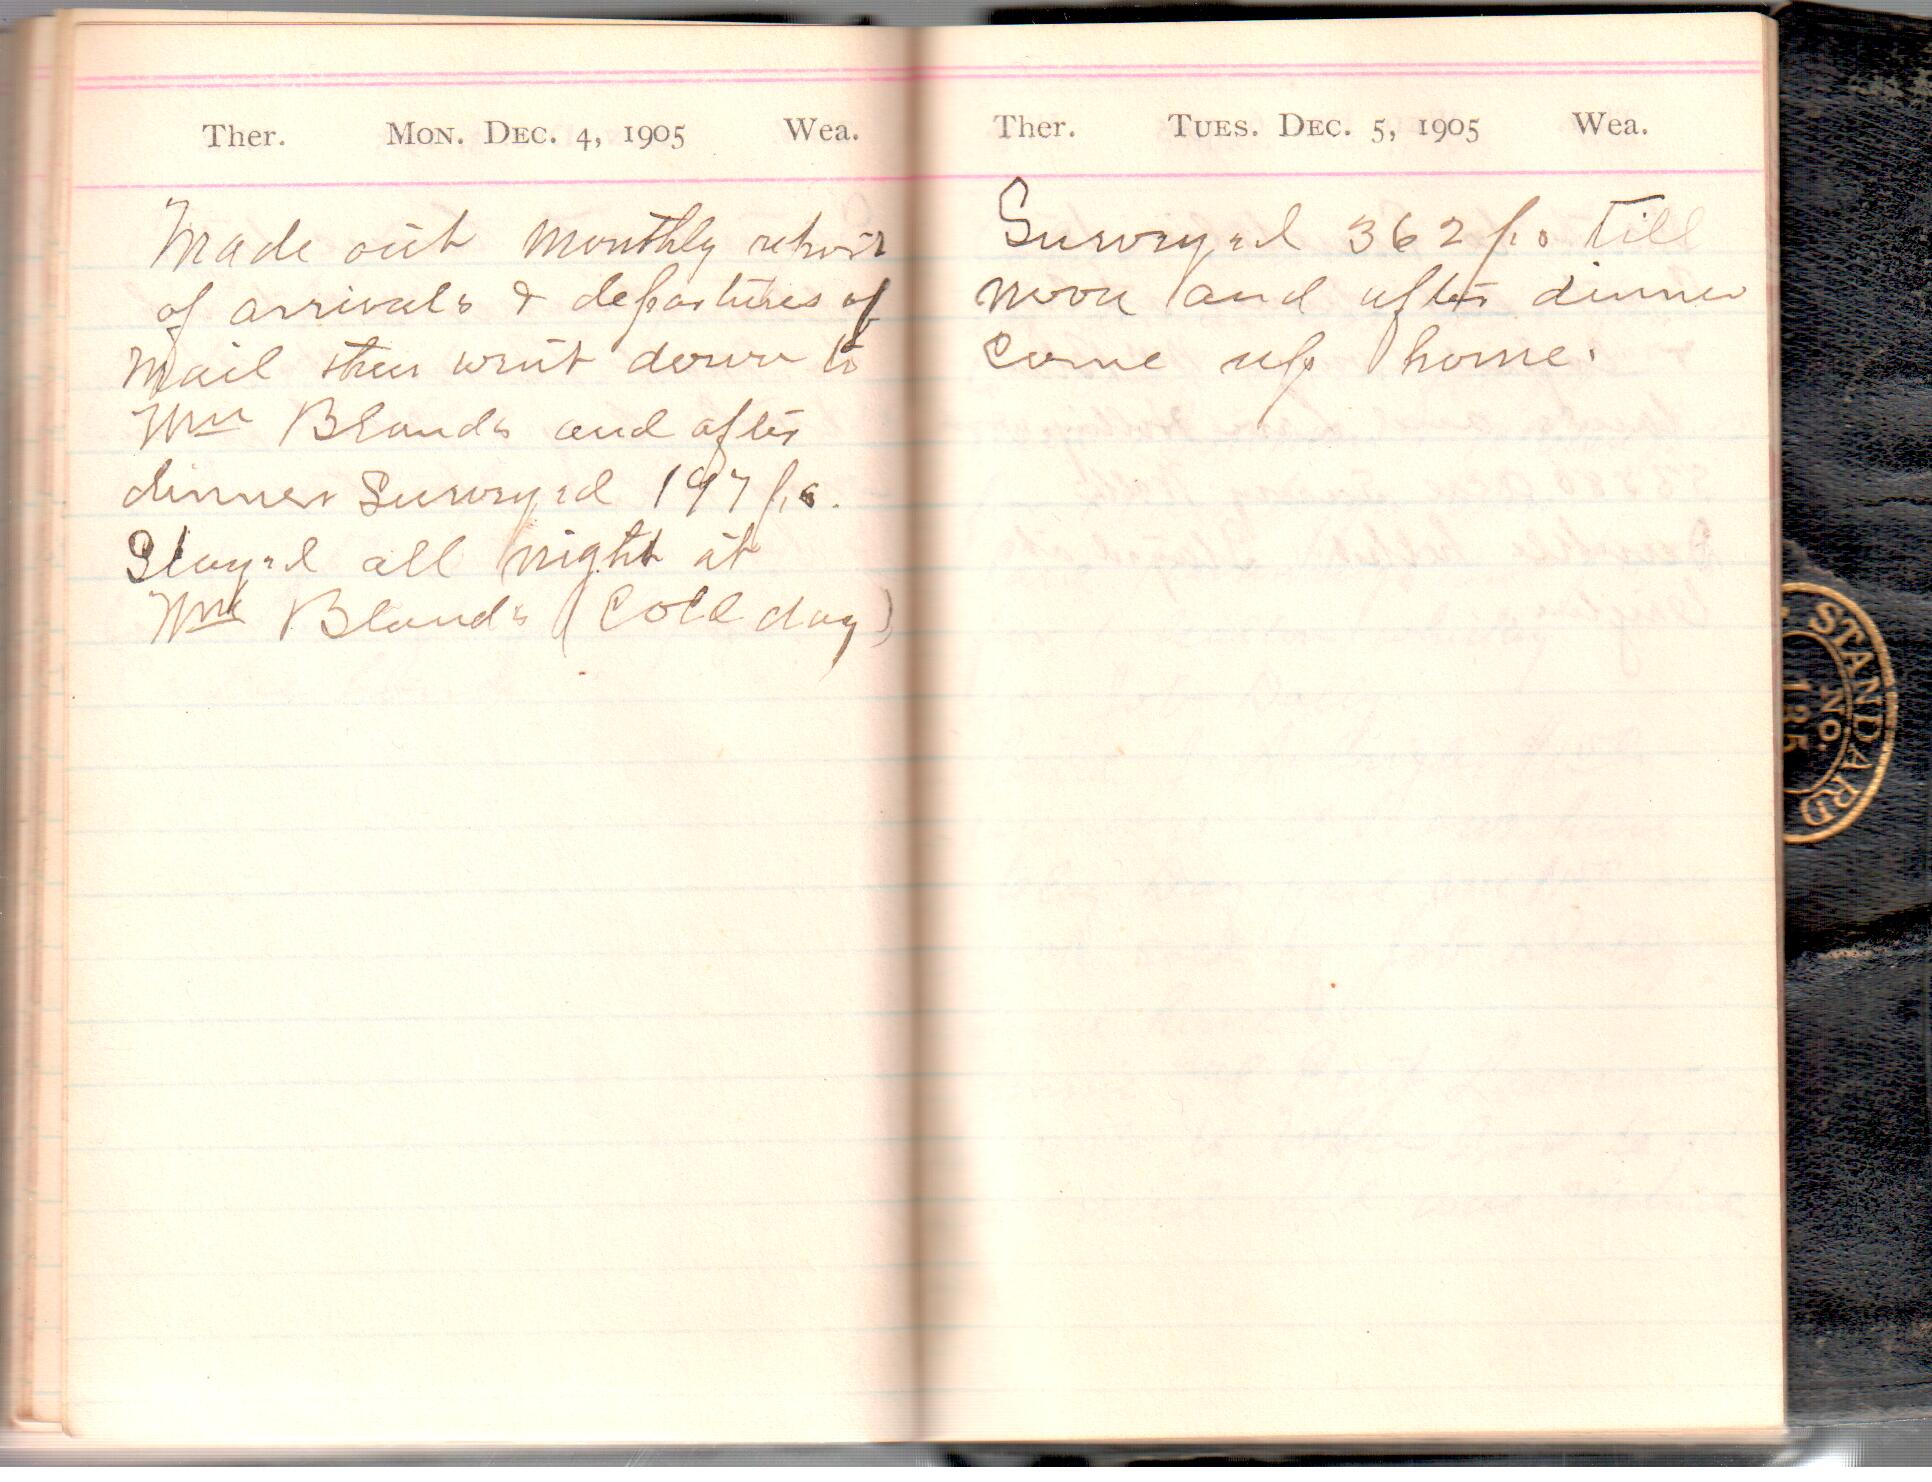 Ther. Mon. Dec. 4, 1905 Wea.
Made out monthly report
of arrivals & departures of
mail then went down to
Mrs Blands and after
dinner Surveyed 197 ps.
Stayed all night at
Mrs Blands (Cold day)
Ther. Tues. Dec. 5, 1905 Wea.
Surveyed 362 ps till
noon and after dinner
come up home.
STANDARD
NO.
185